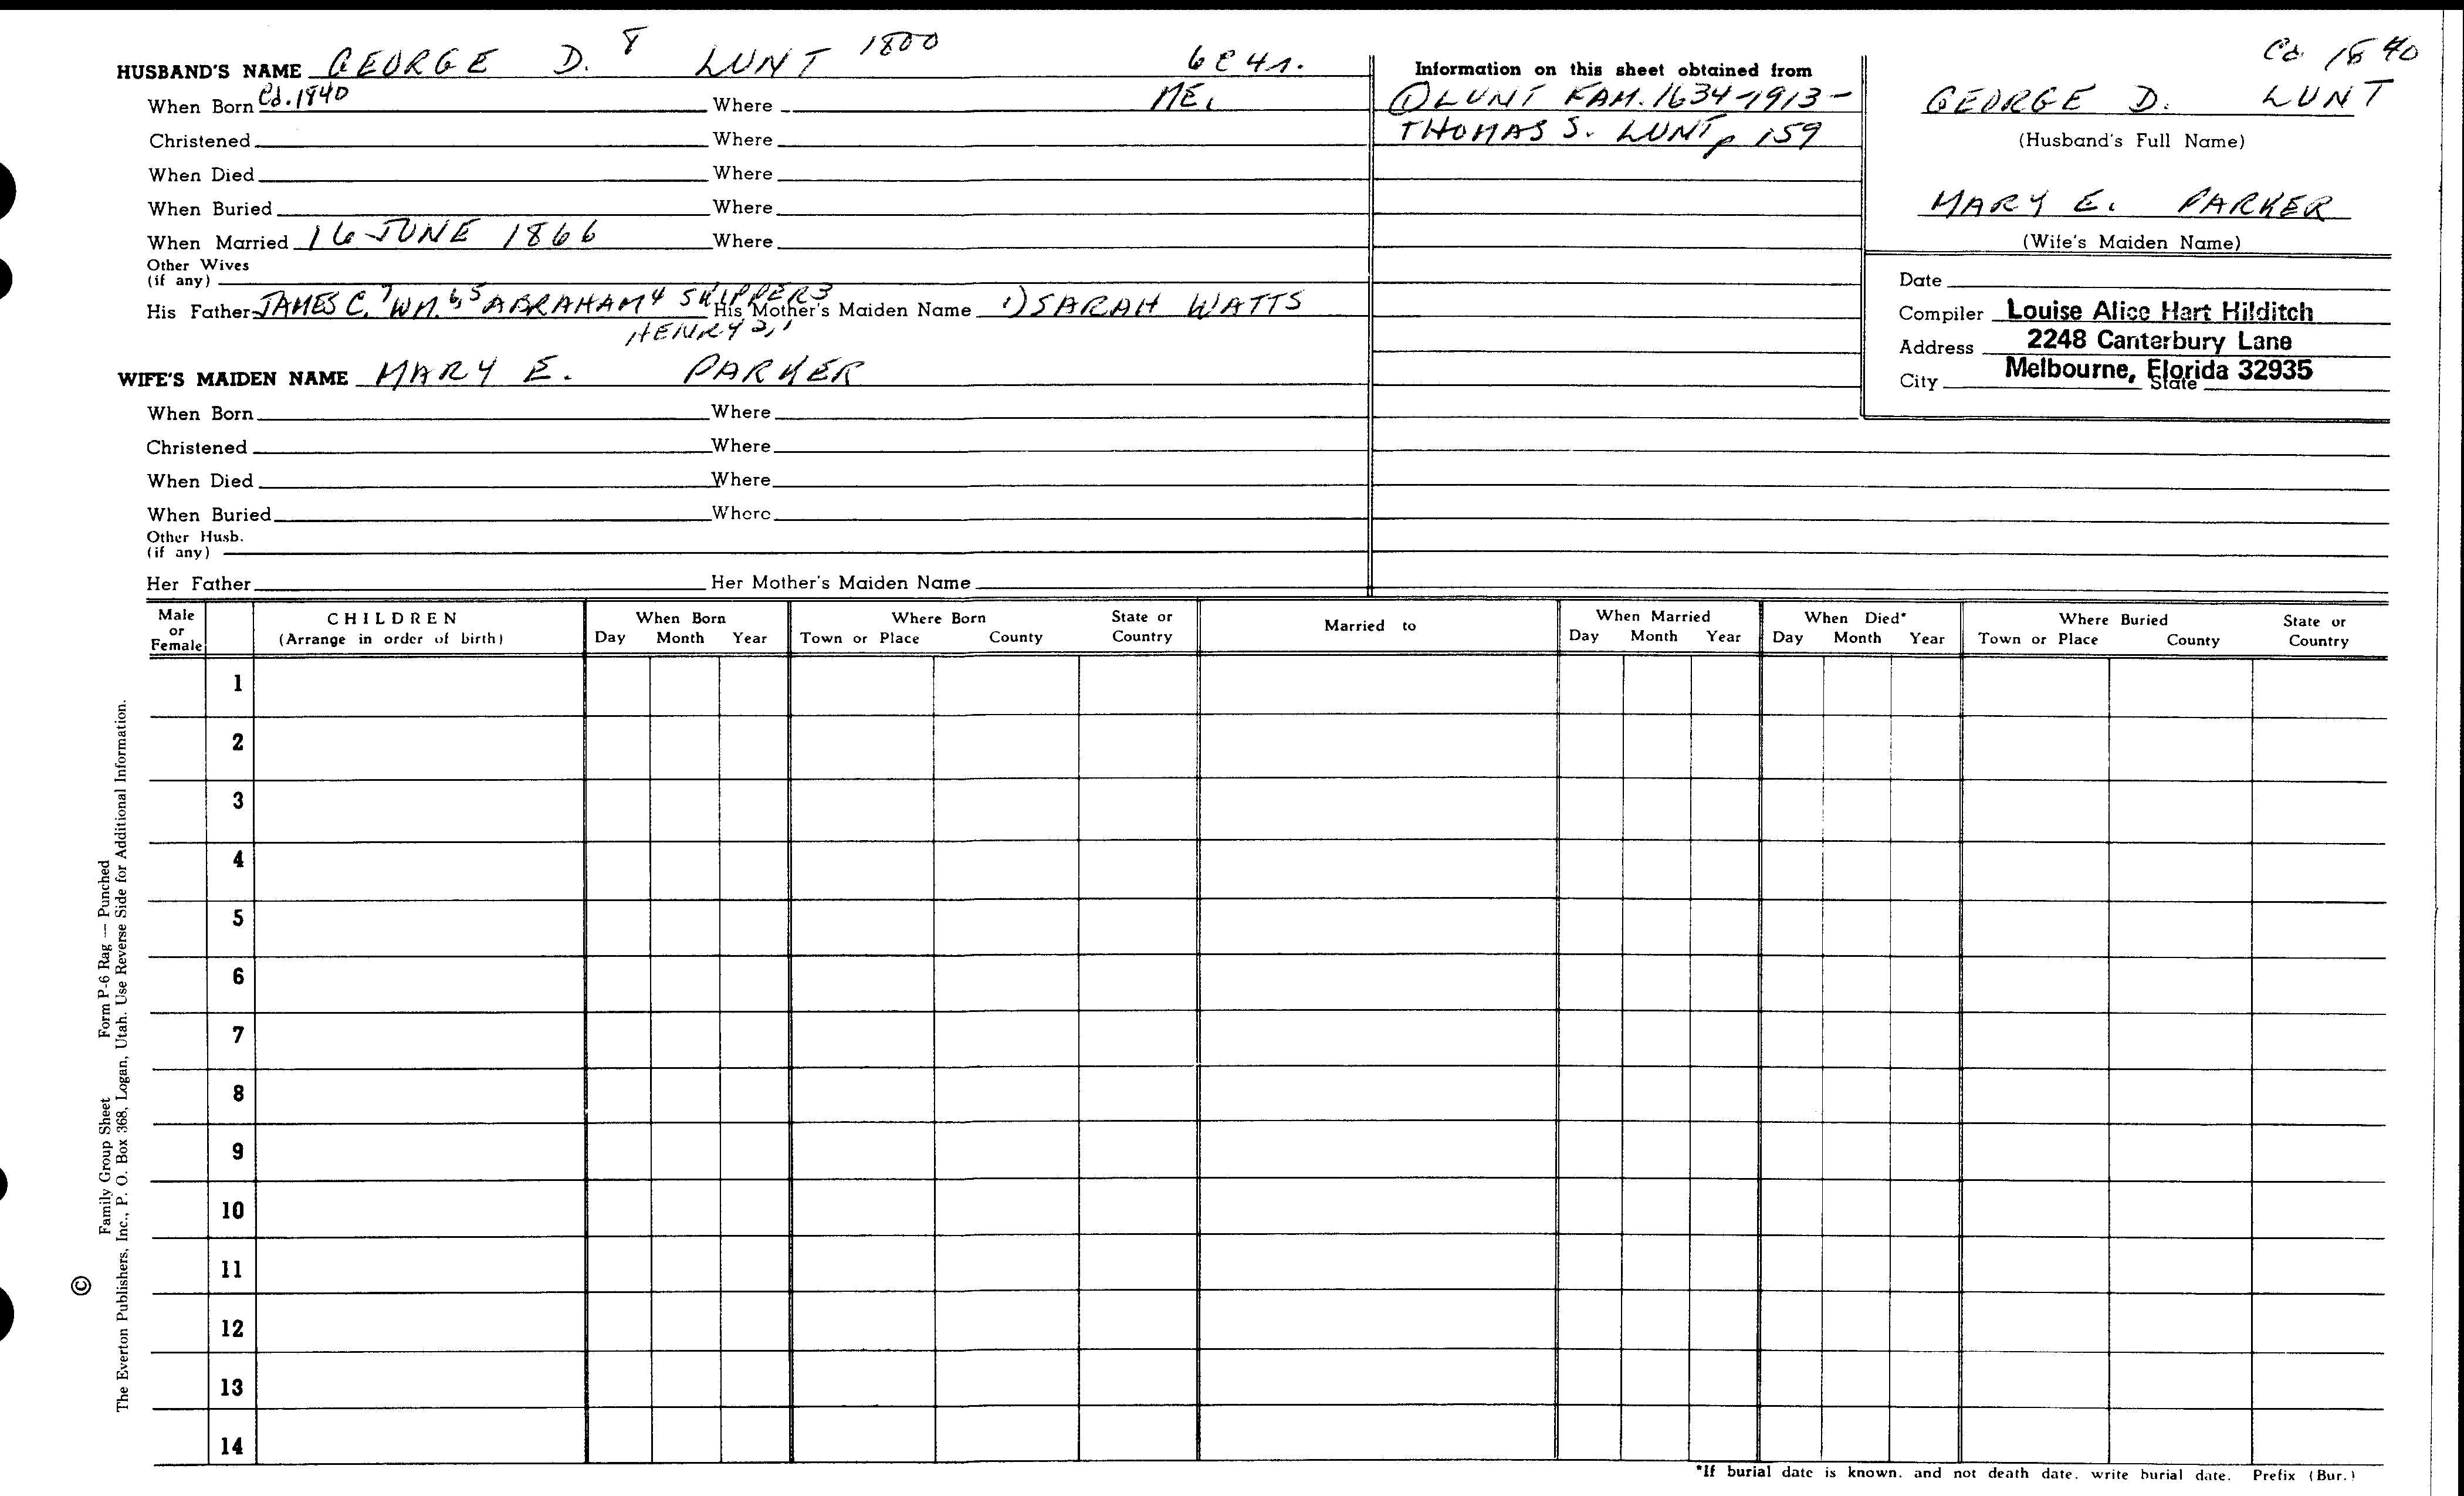 HUSBAND'S NAME GEORGE D. 8 LUNT 1800
When Born Cd. 1840 Where ME.
Christened Where
When Died Where
When Buried Where
When Married 16 JUNE 1866 Where
Other Wives
(if any)
His Father JAMES C. 7 WM. 6,5 ABRAHAM 4 SKIPPER 3 His Mother's Maiden Name 1) SARAH WATTS
HENRY 2,1
WIFE'S MAIDEN NAME MARY E. PARKER
When Born Where
Christened Where
When Died Where
When Buried Where
Other Husb.
(if any)
Her Father Her Mother's Maiden Name
Information on this sheet obtained from
① LUNT FAM. 1634-1913-
THOMAS S. LUNT, p 159
Cd. 1840
GEORGE D. LUNT
(Husband's Full Name)
MARY E. PARKER
(Wife's Maiden Name)
Date
Compiler Louise Alice Hart Hilditch
Address 2248 Canterbury Lane
Melbourne, Florida 32935
City State
Male
or
Female
CHILDREN
(Arrange in order of birth)
When Born
Day Month Year
Where Born
Town or Place County
State or
Country
Married to
When Married
Day Month Year
When Died*
Day Month Year
Where Buried
Town or Place County
State or
Country
1
2
3
4
5
6
7
8
9
10
11
12
13
14
*If burial date is known, and not death date, write burial date. Prefix (Bur.)
© Family Group Sheet Form P-6 Rag — Punched
The Everton Publishers, Inc., P. O. Box 368, Logan, Utah. Use Reverse Side for Additional Information.